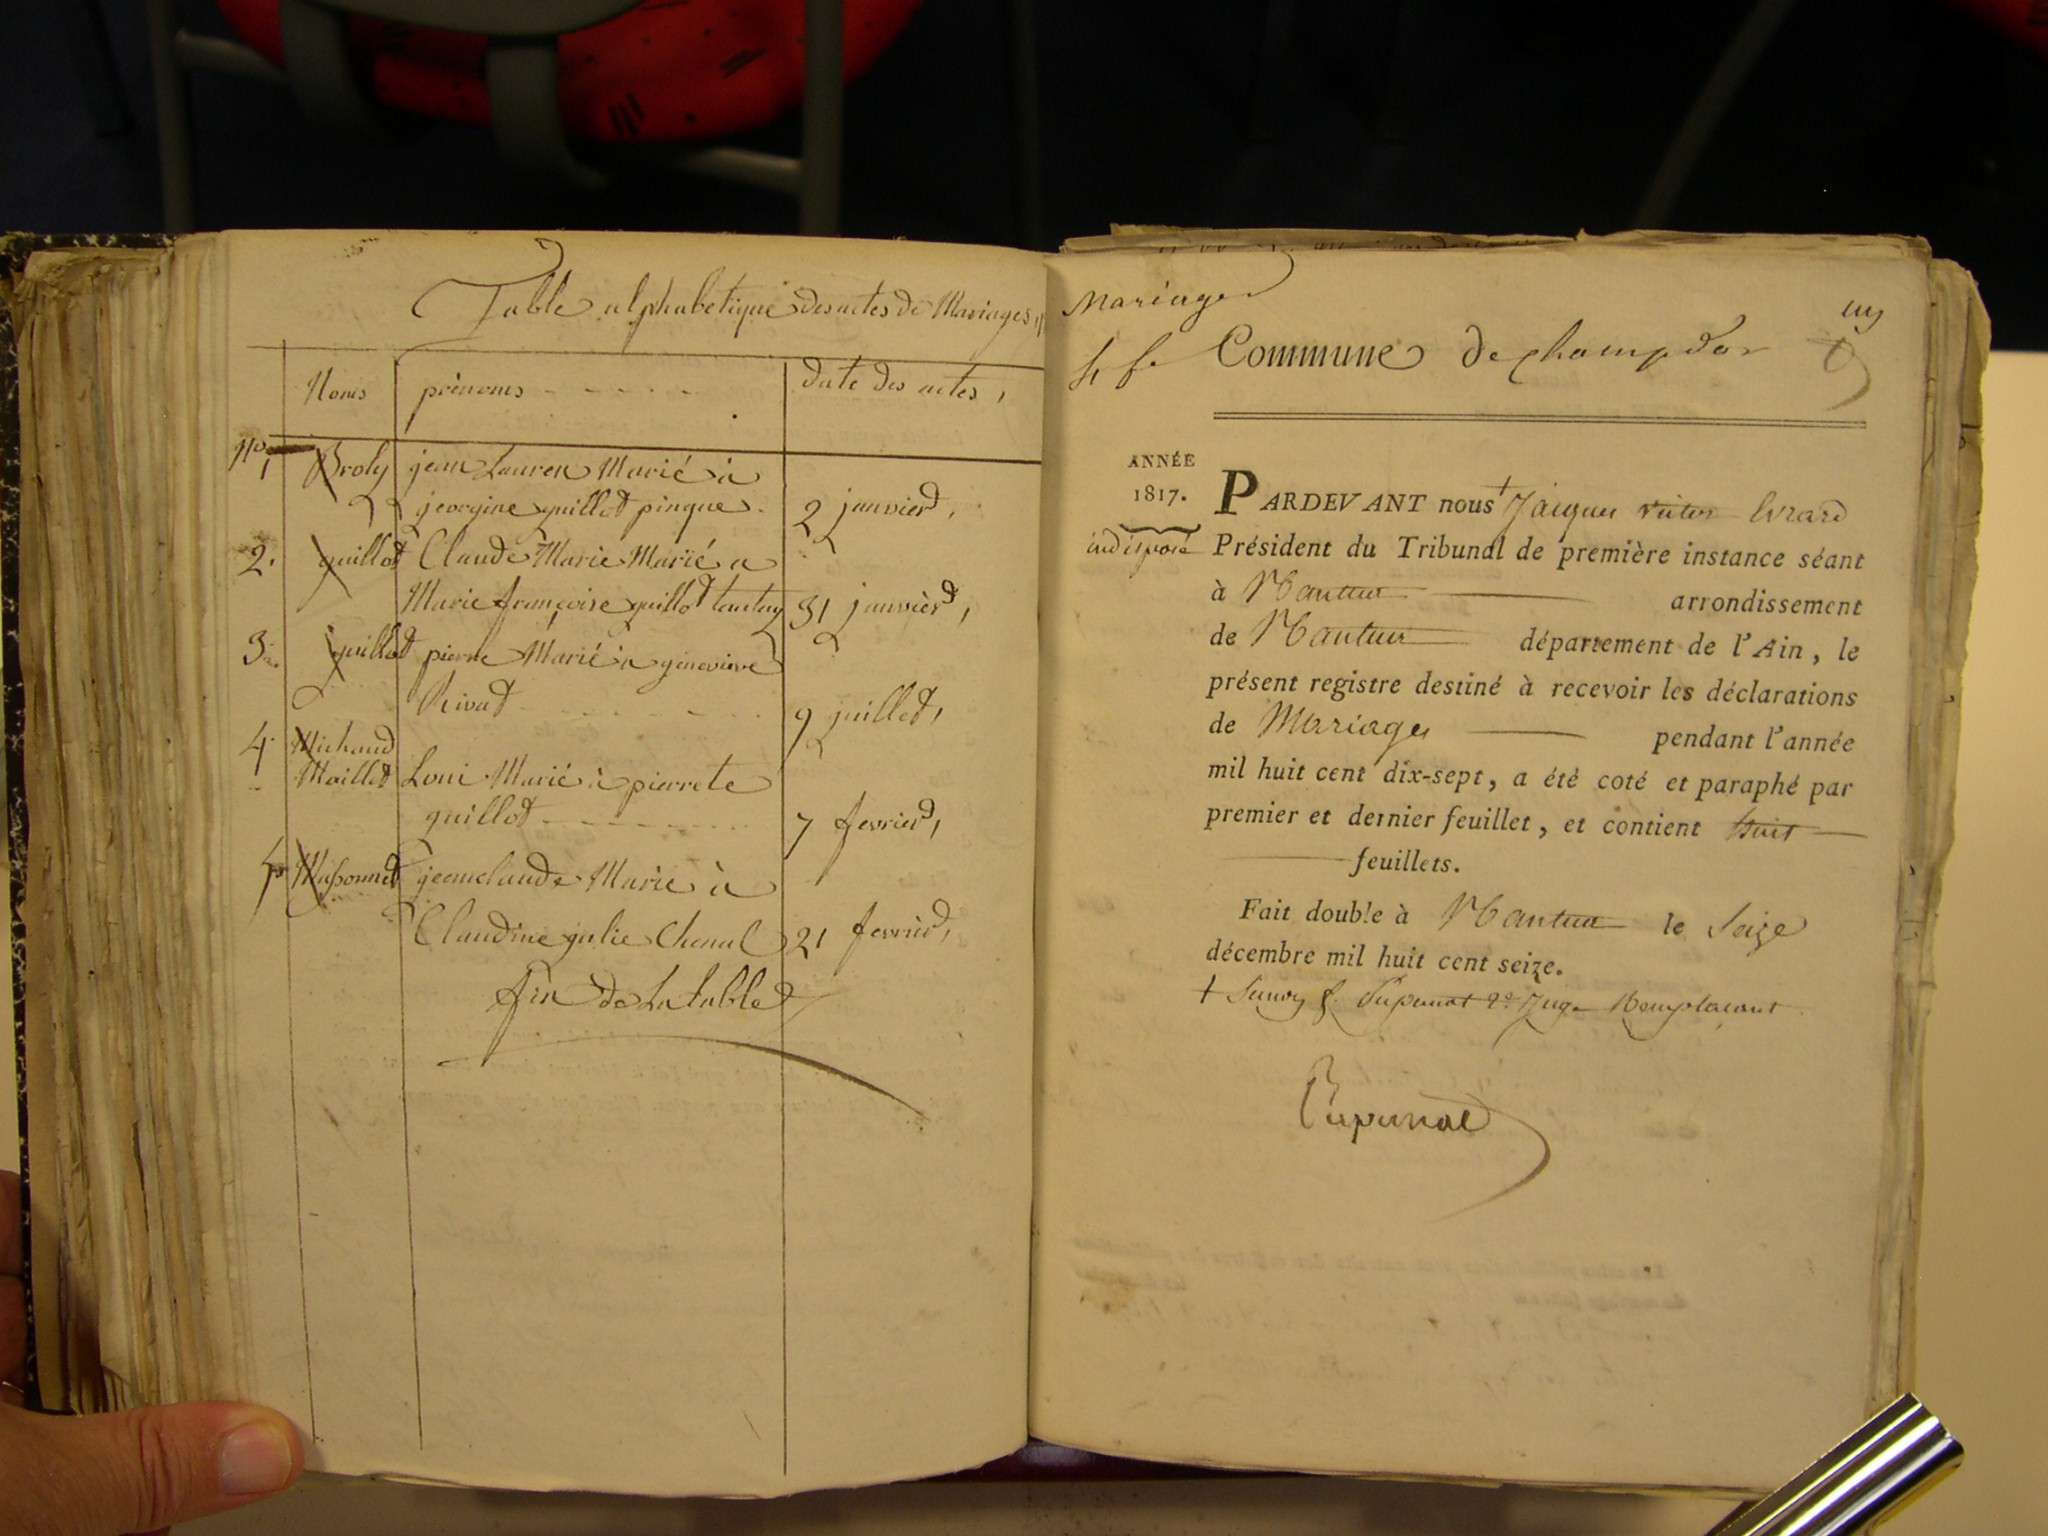 Table alphabetique des actes de Mariages,
Noms prénoms date des actes,
Nos,
1 Broly jean Lauren Marié à
georgine guillot pingue. 2 janvier,
2. guillot Claude Marie Marié a
Marie françoise guillot tantay 31 janvier,
3. guillot pierre Marié à genevieve
Rivat 9 juillet,
4. Michaud
Maillet Loui Marié à pierrete
guillot 7 fevrier,
5 Massonnet jeanclaude Marié à
Claudine julie Chenal 21 fevrier,
fin de La table
Mariages
un
Commune de champdor
ANNÉE
1817.
indisposé
PARDEVANT nous + Jacques victor Evrard
Président du Tribunal de première instance séant
à Nantua arrondissement
de Nantua département de l'Ain, le
présent registre destiné à recevoir les déclarations
de Mariages pendant l'année
mil huit cent dix-sept, a été coté et paraphé par
premier et dernier feuillet, et contient huit
feuillets.
Fait double à Nantua le Seize
décembre mil huit cent seize.
+ Pupunat 2e Juge Remplacant
Pupunat